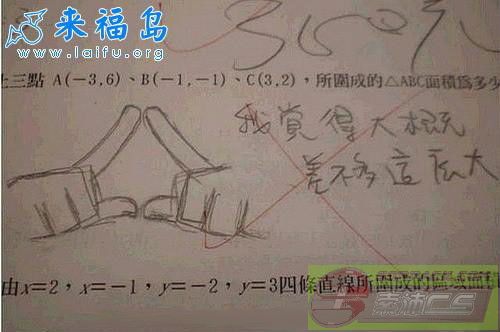 来福岛
www.laifu.org
360元
上三點 A(−3,6)、B(−1,−1)、C(3,2),所圍成的△ABC面積為多少
我覺得大概
差不多這麼大
由x=2,x=−1,y=−2,y=3四條直線所圍成的區域面積